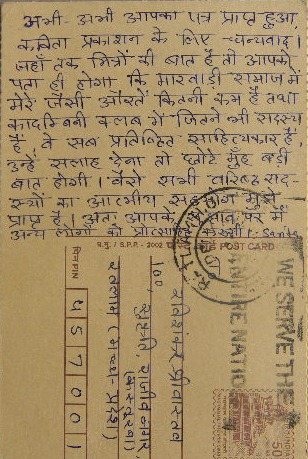 अभी-अभी आपका पत्र प्राप्त हुआ,
कविता प्रकाशन के लिए धन्यवाद।
जहाँ तक मित्रों की बात है तो आपको
पता ही होगा कि मारवाड़ी समाज में
मेरे जैसी औरतें कितनी कम हैं तथा
कादम्बिनी क्लब में जितने भी सदस्य
हैं, वे सब प्रतिष्ठित साहित्यकार हैं,
उन्हें सलाह देना तो छोटे मुँह बड़ी
बात होगी। वैसे सभी वरिष्ठ सद-
स्यों का आत्मीय मुझे
प्राप्त है। अतः आपके पर मैं
अन्य लोगों को
S.P.P. - 2002 POST CARD
WE SERVE THE
ENTIRE NATIO
रविशंकर श्रीवास्तव
100,
रतलाम (मध्य-प्रदेश)
पिन PIN
457001
50